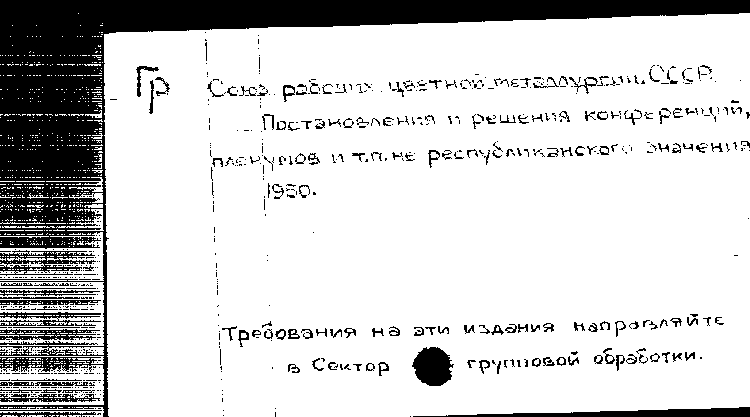 Гр Союз рабочих цветной металлургии СССР.
Постановления и решения конференций,
пленумов и т.п. не республиканского значения
1950.
Требования на эти издания направляйте
в Сектор групповой обработки.